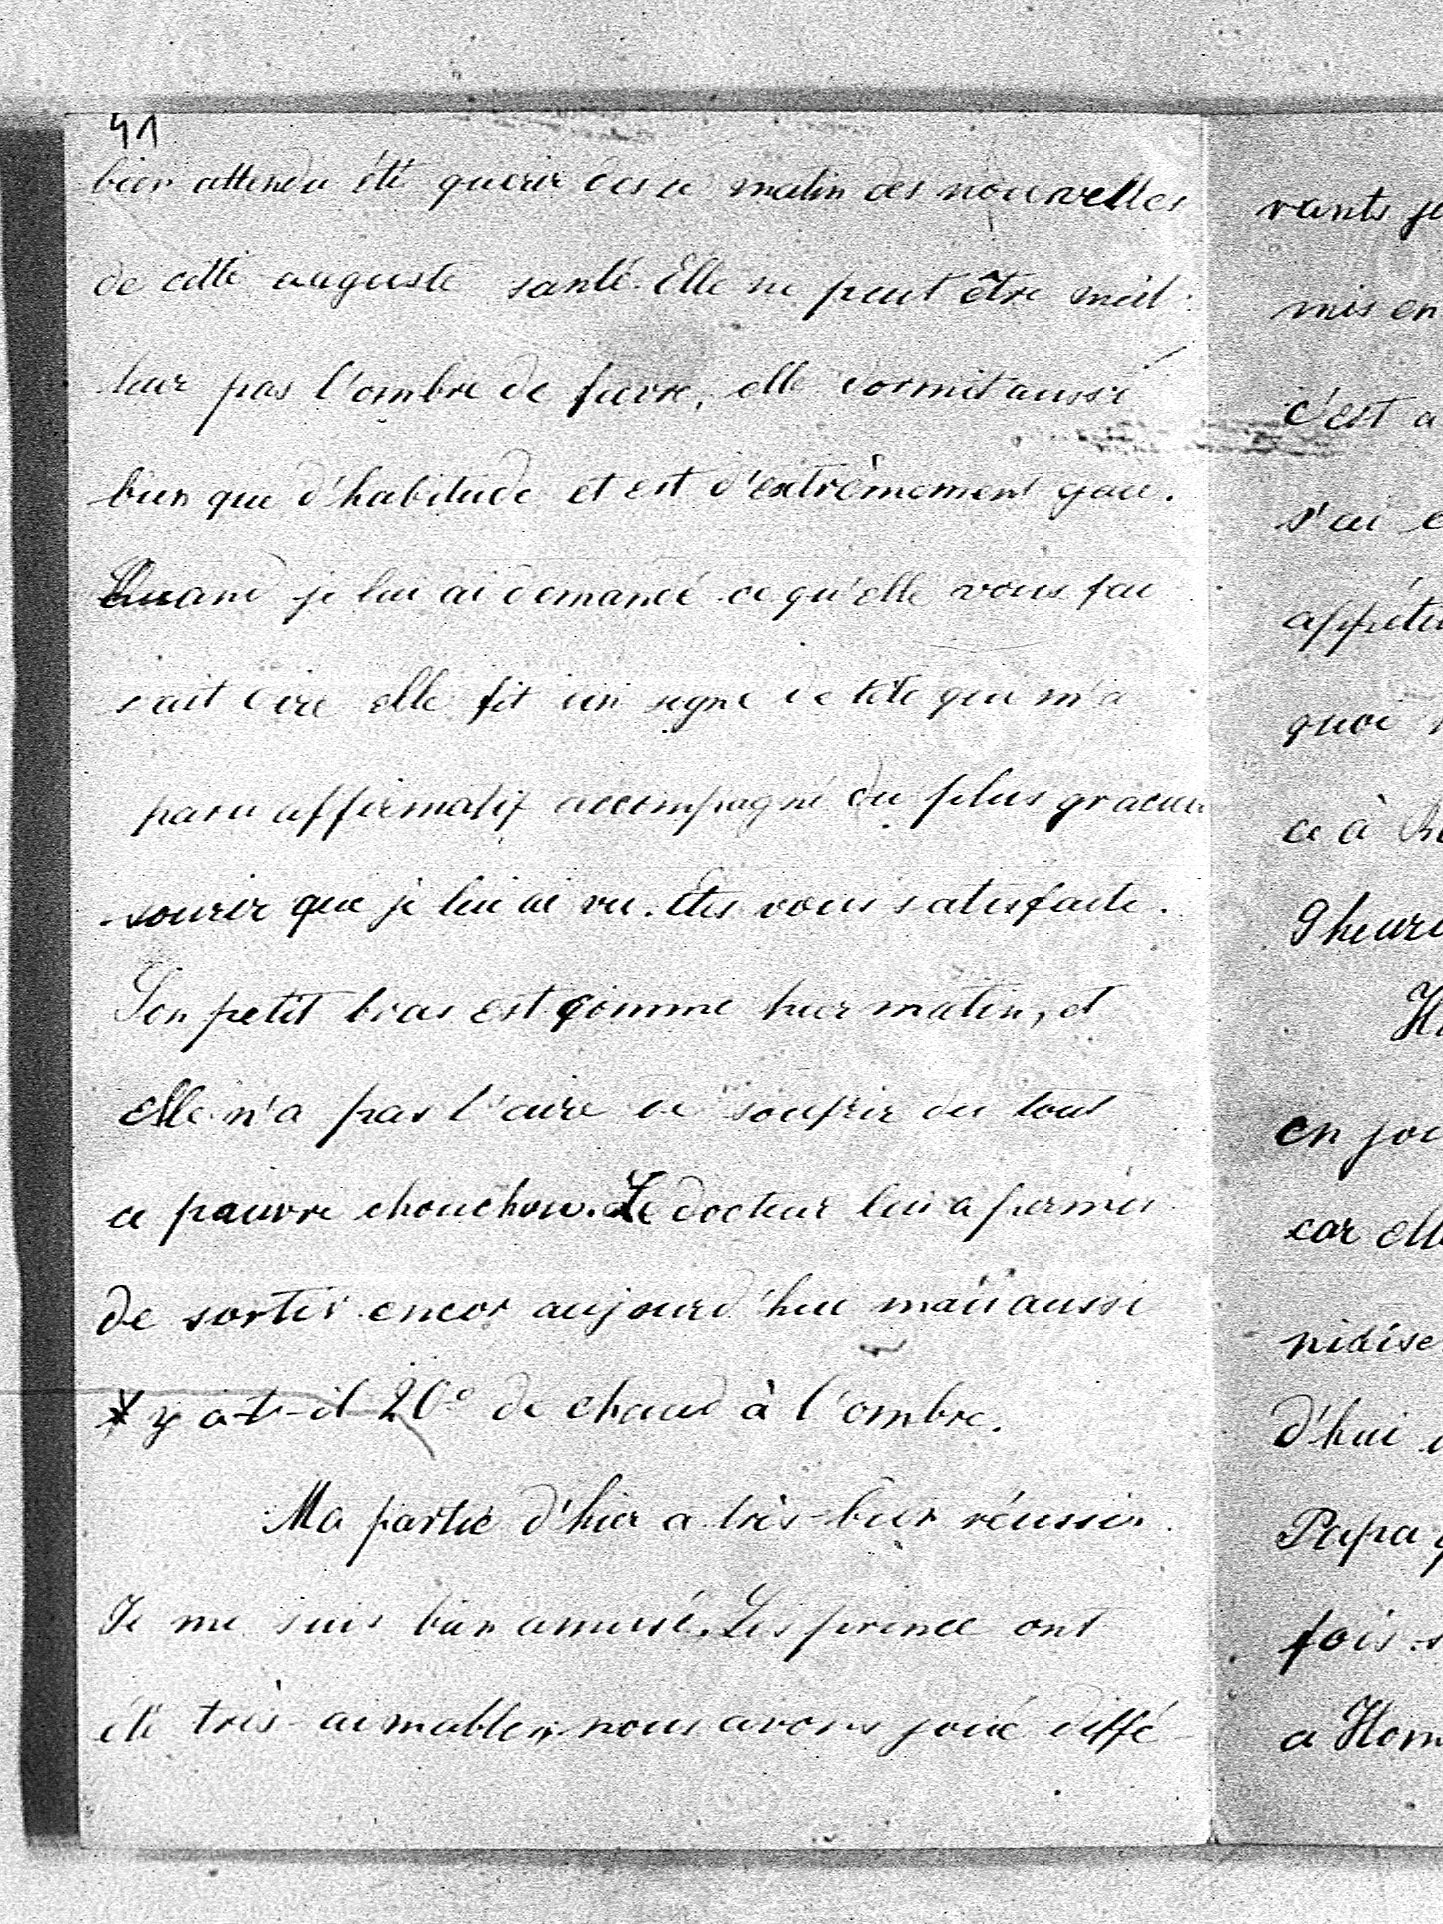 41
bien attendu été querir dès ce matin des nouvelles
de cette auguste santé. Elle ne peut être meil-
leur pas l'ombre de fievre, elle dormit aussi
bien que d'habitude et est d'extrêmement gaie.
Quand je lui ai demandé ce qu'elle vous fai
sait dire elle fit un signe de tête qui m'a
paru affirmatif accompagné du plus gracieu
sourir que je lui ai vu. Etes vous satisfaite.
Son petit bras est comme hier matin, et
elle n'a pas l'aire de soufrir du tout
ce pauvre chouchou. Le docteur lui a permis
de sortir encor aujourd'hui mais aussi
y a-t-il 20° de chaud à l'ombre.
Ma partie d'hier a très-bien réussir.
Je me suis bien amusé. Les prince ont
été très-aimables, nous avons joué diffé-
rants je
mis en
c'est a
j'ai e
appéti
quoi
ce à
9 heure
en jou
car elle
d'hui
Papa
fois
a Hom